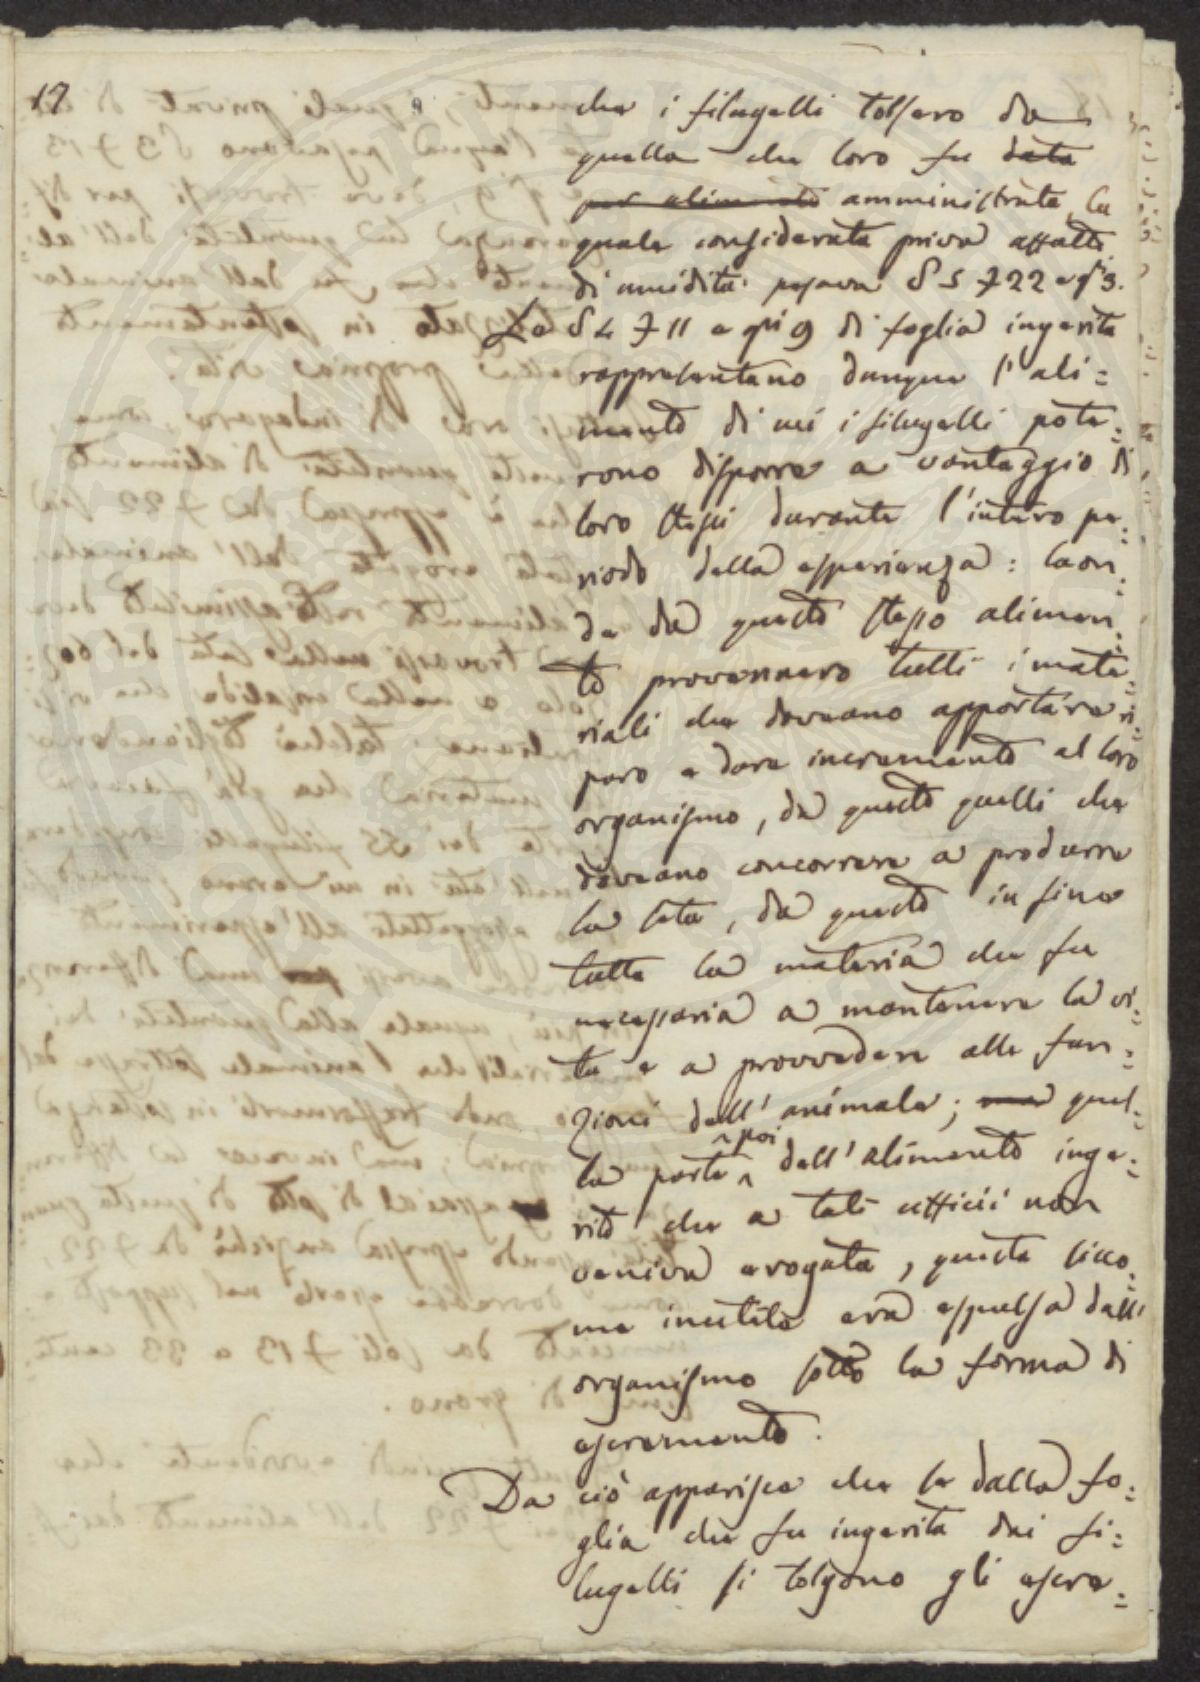 17
che i filugelli tolsero da
quella che loro fu data
per alimento amministrata, la
quale considerata priva affatto
di umidità pesava δ 5 Ʒ 22 e gi 9.
Le δ 4 Ʒ 11 e gi 9 di foglia ingerita
rappresentano dunque l'ali=
mento di cui i filugelli pote=
rono disporre a vantaggio di
loro stessi durante l'intero pe=
riodo della esperienza: laon=
de da questo stesso alimen=
to provennero tutti i mate=
riali che doveano apportare ri=
paro e dare incremento al loro
organismo, da questo quelli che
doveano concorrere a produrre
la seta, da questo in fine
tutta la materia che fu
necessaria a mantenere la vi=
ta e a provvedere alle fun=
zioni dell'animale; ma quel=
la parte poi dell'alimento inge=
rito che a tali ufficii non
veniva erogata, questa sicco=
me inutile era espulsa dall'
organismo sotto la forma di
escremento.
Da ciò apparisce che se dalla fo=
glia che fu ingerita dai fi=
lugelli si tolgono gli escre=